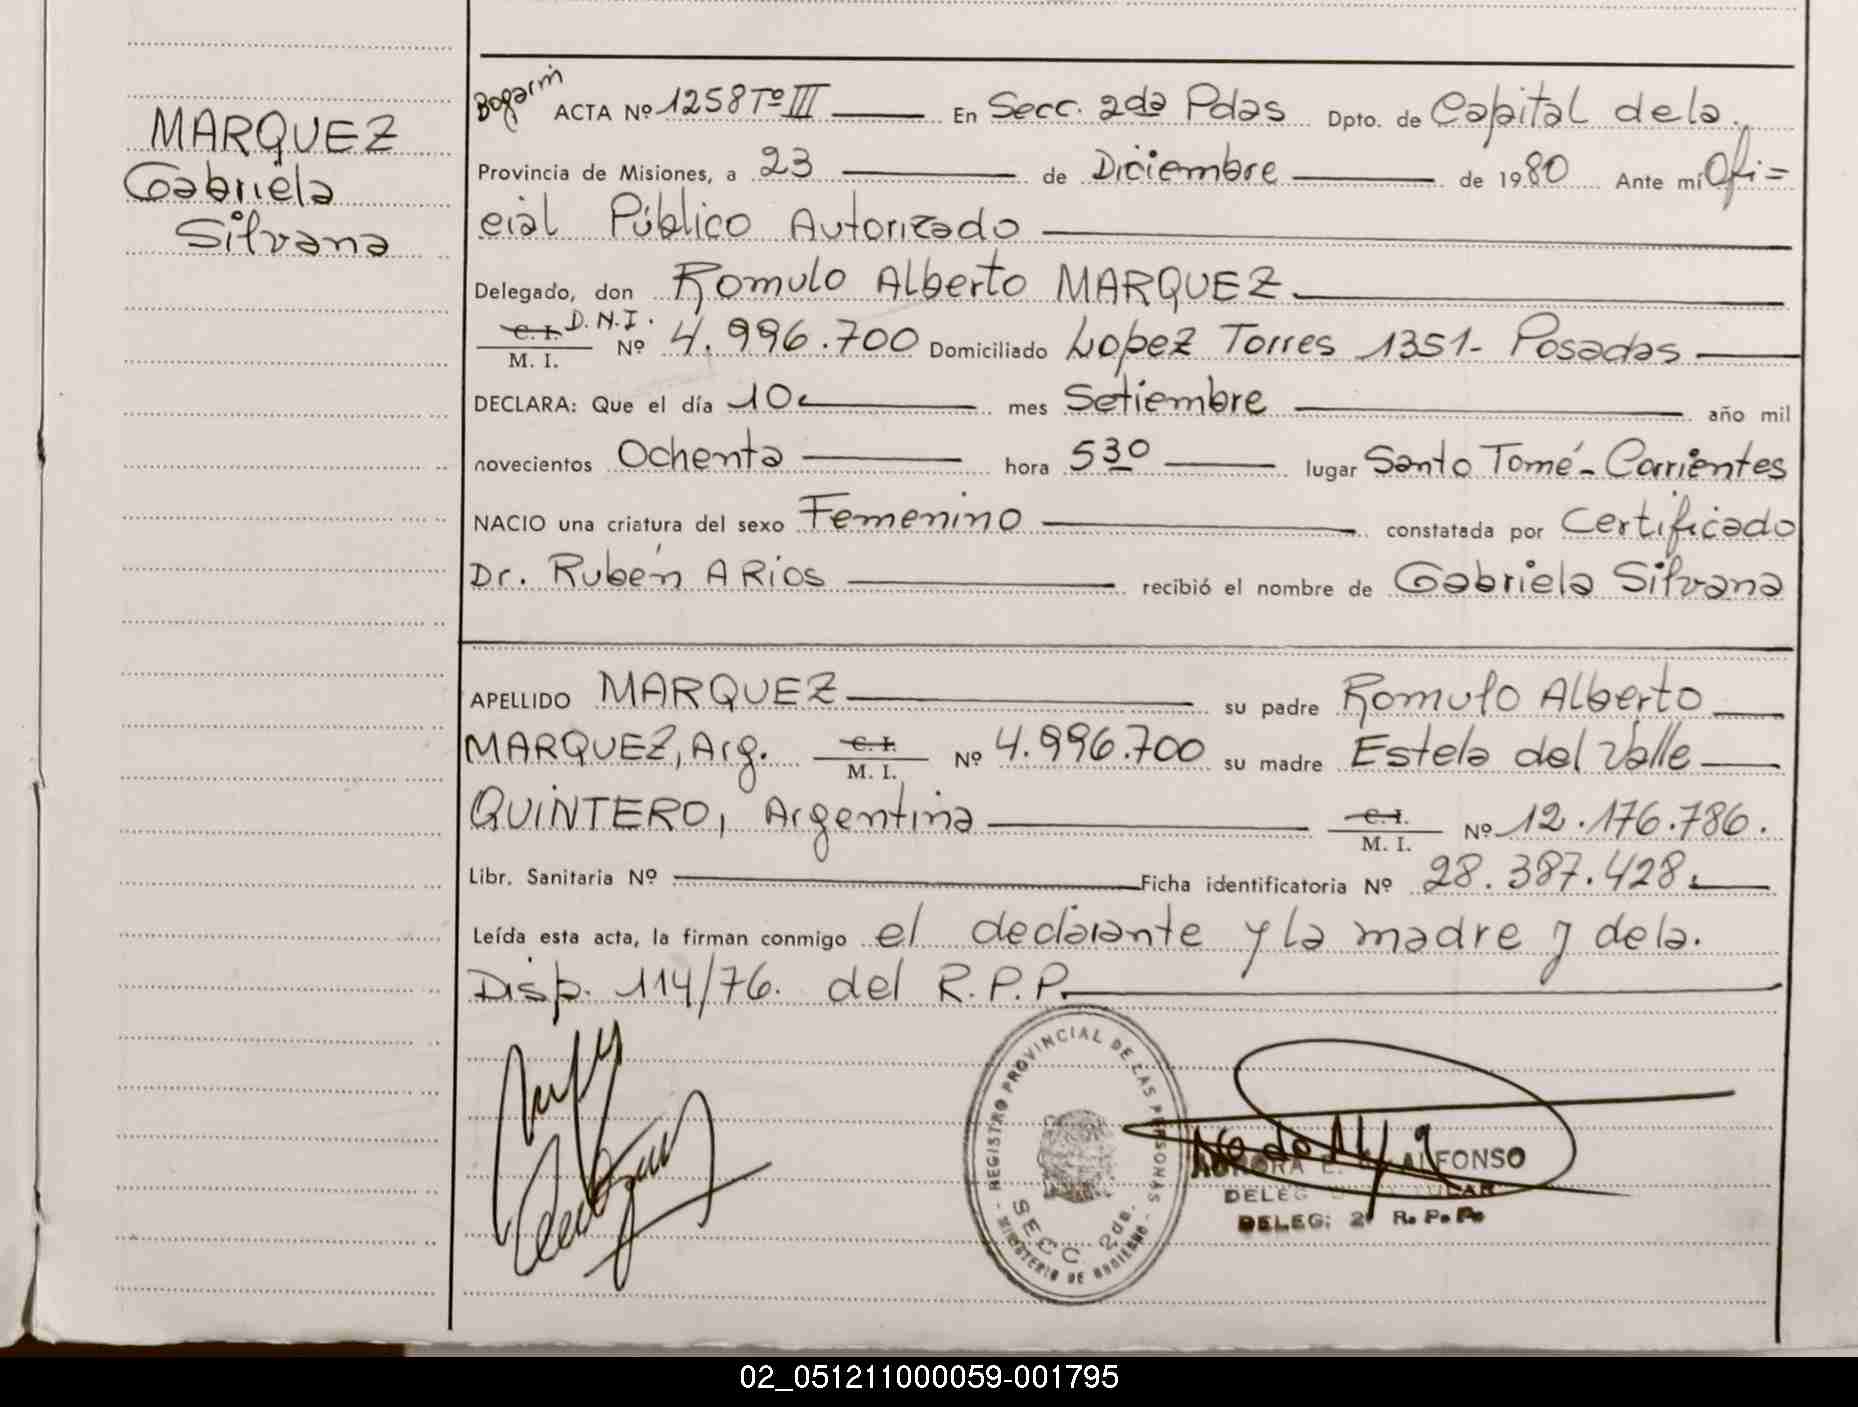 MARQUEZ
Gabriela
Silvana
Bogarin ACTA Nº 1258 Tº III En Secc. 2da Pdas Dpto. de Capital de la
Provincia de Misiones, a 23 de Diciembre de 1980 Ante mí Ofi=
cial Público Autorizado
Delegado, don Romulo Alberto MARQUEZ
C. I. D.N.I.
M. I. Nº 4.996.700 Domiciliado Lopez Torres 1351- Posadas
DECLARA: Que el día 10 mes Setiembre año mil
novecientos Ochenta hora 5 30 lugar Santo Tomé - Corrientes
NACIO una criatura del sexo Femenino constatada por Certificado
Dr. Rubén A Rios recibió el nombre de Gabriela Silvana
APELLIDO MARQUEZ su padre Romulo Alberto
MARQUEZ, Arg. C. I. M. I. Nº 4.996.700 su madre Estela del Valle
QUINTERO, Argentina C. I. M. I. Nº 12.176.786.
Libr. Sanitaria Nº Ficha identificatoria Nº 28.387.428.
Leída esta acta, la firman conmigo el declarante y la madre y de la.
Disp. 114/76. del R.P.P.
REGISTRO PROVINCIAL DE LAS PERSONAS
SECC 2da.
- MINISTERIO DE GOBIERNO -
AURORA E. ALFONSO
TITULAR
DELEG: 2ª R.P.P.
02_051211000059-001795